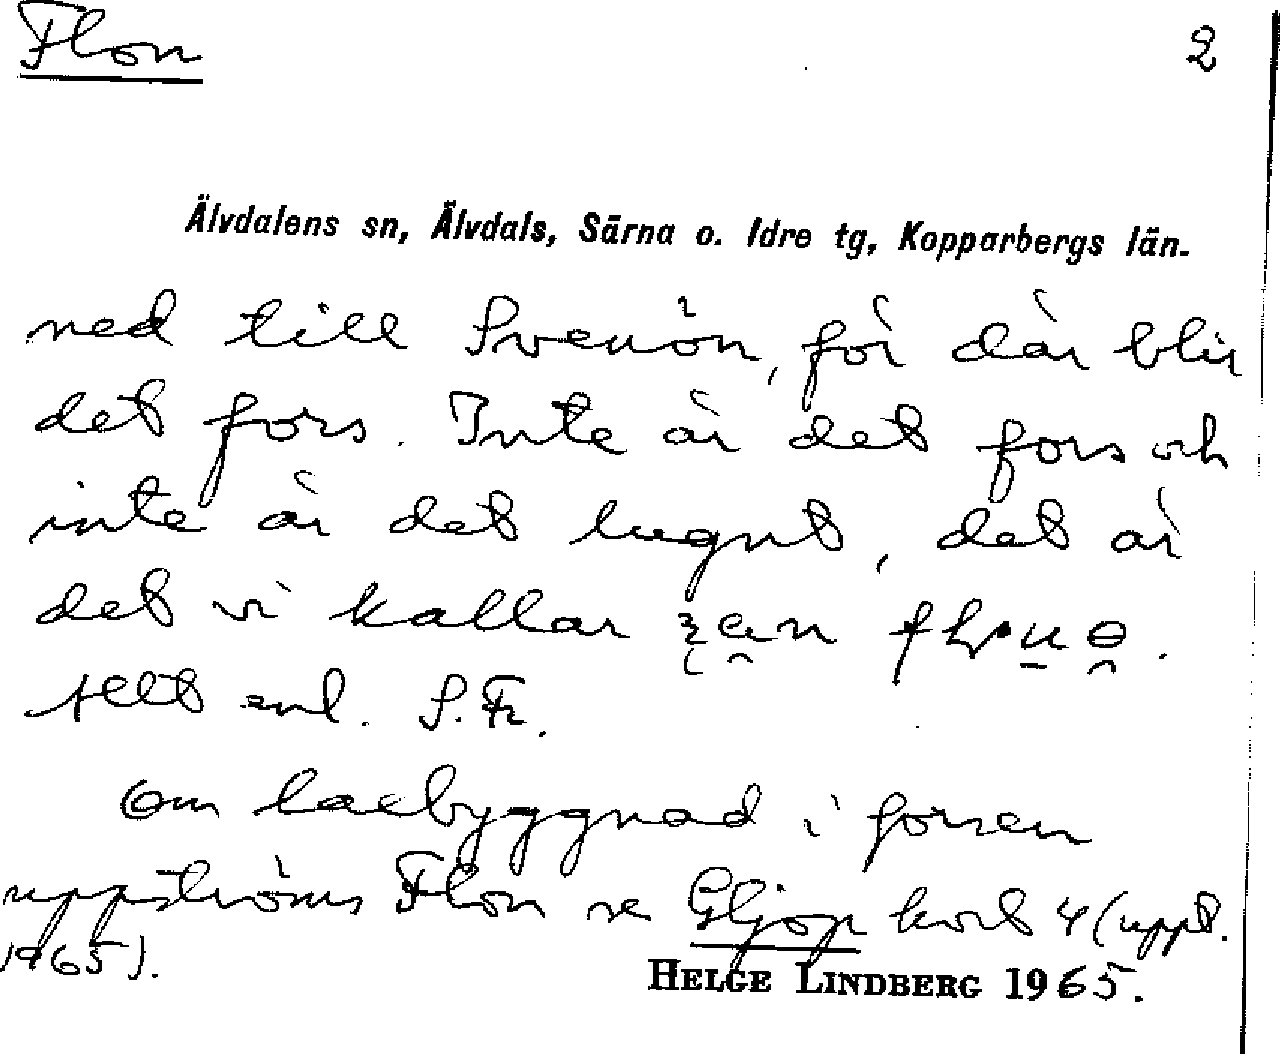 Flon 2
Älvdalens sn, Älvdals, Särna o. Idre tg, Kopparbergs län.
ned till Svenön, för där blir
det fors. Inte är det fors och
inte är det lugnt, det är
det vi kallar
allt enl. S.Fr.
Om laxbyggnad i forsen
uppströms Flon se Gljop kort 4 (uppt.
1965).
HELGE LINDBERG 1965.